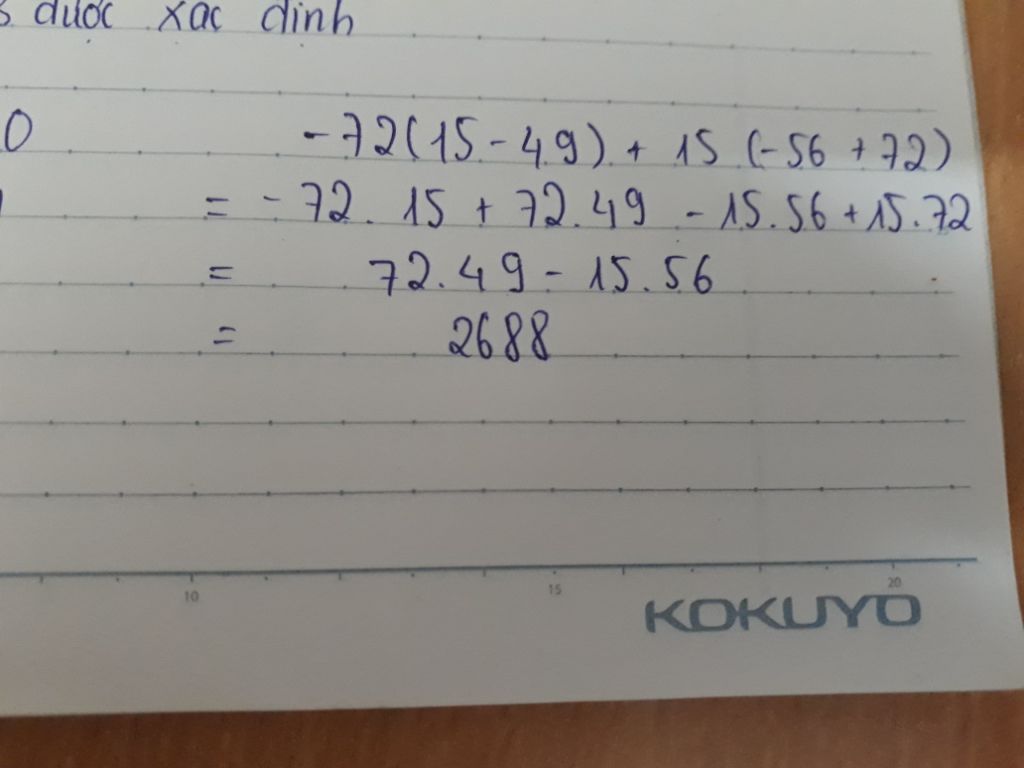 được xác định
0 -72(15-49) + 15 (-56 + 72)
= -72. 15 + 72.49 - 15.56 + 15.72
= 72.49 - 15.56
= 2688
10 15 20
KOKUYO